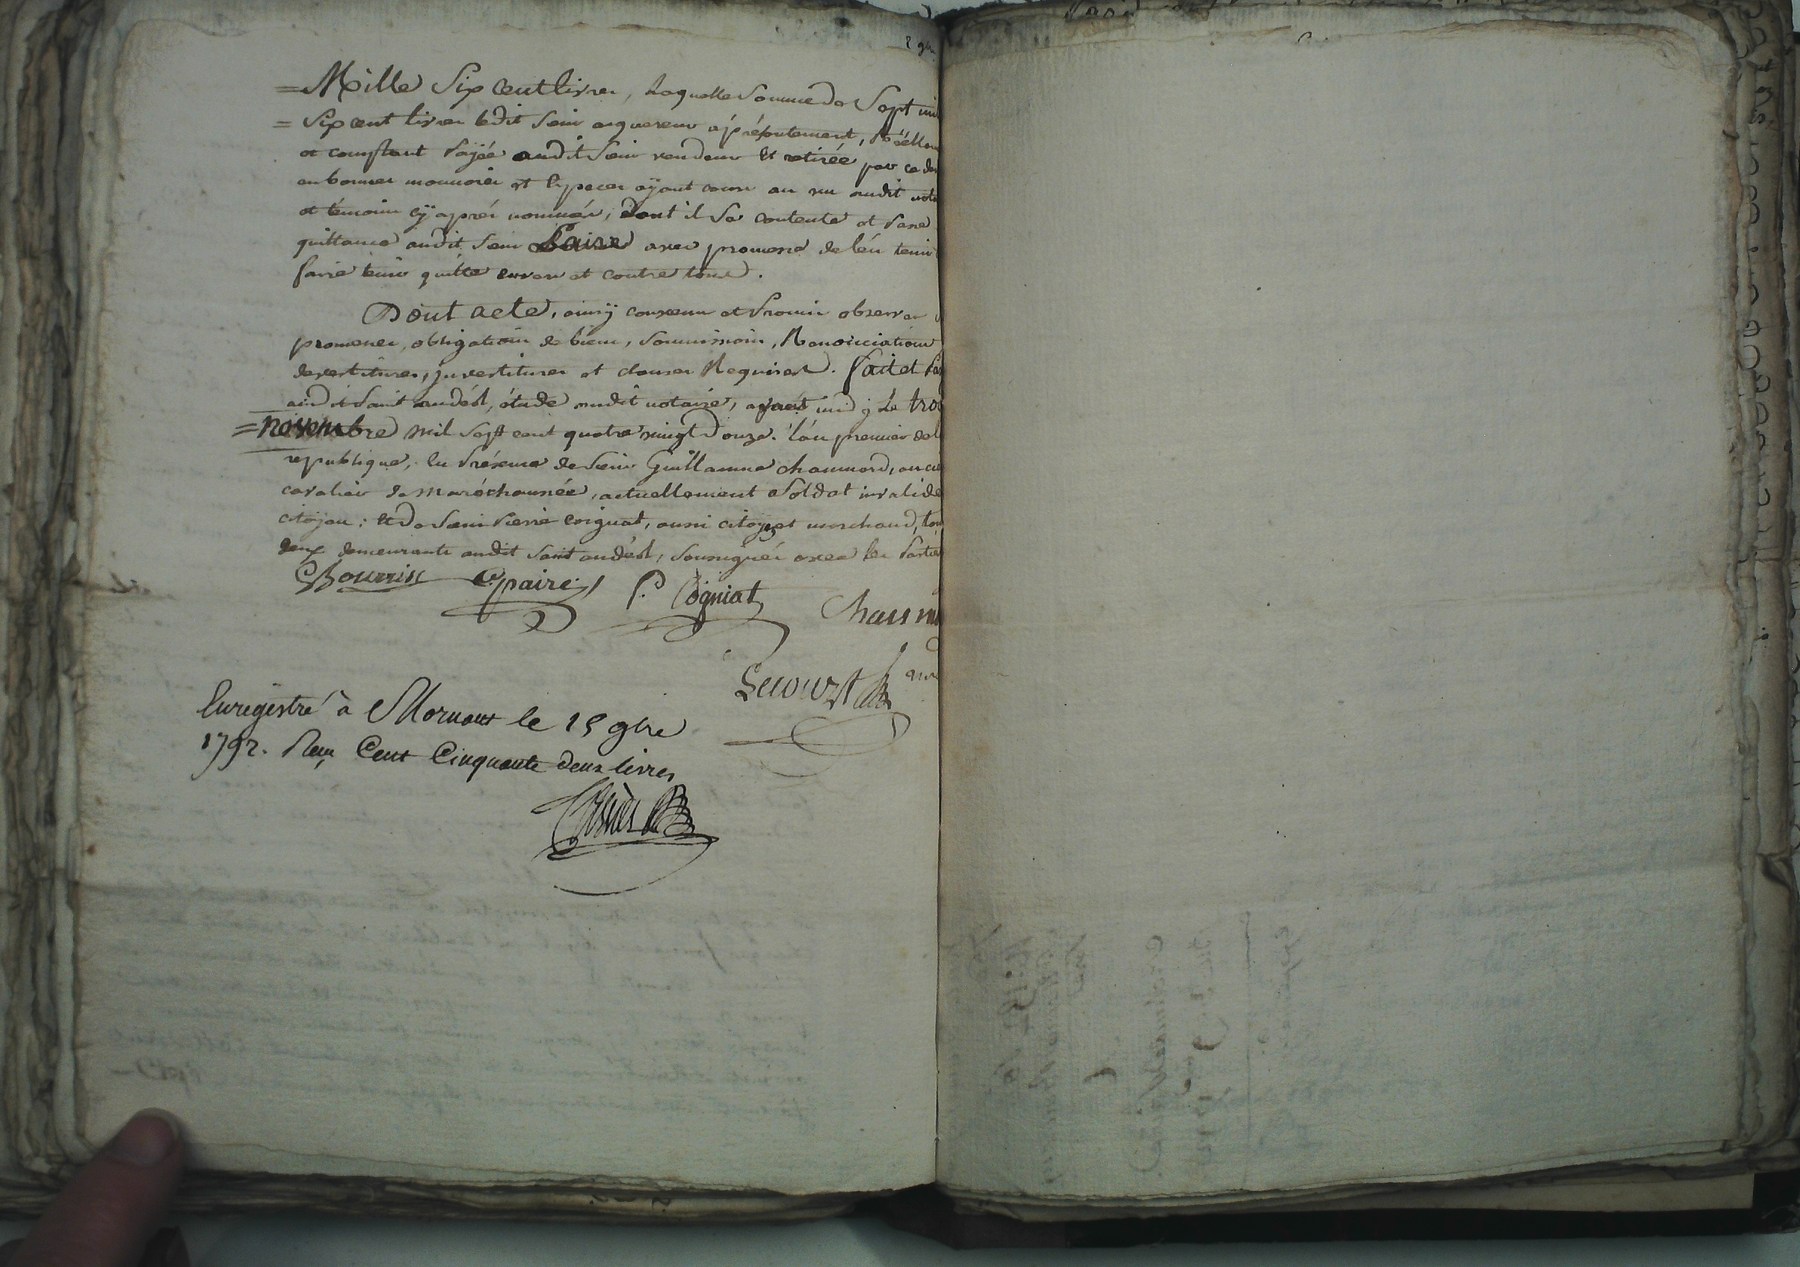 =Mille Six cent livres, Laquelle Somme de Sept mi
=Six cent livres ledit Sieur acquereur a présentement, Réellem
et comptant Payée audit Sieur vendeur Et retirée par ce de
en bonnes monnoies et Especes ayant cours au vu dudit not
et témoins cÿ après nommés, dont il Se contente et Passe
quittance audit Sieur Paire avec promesse de l'en tenir
faire tenir quitte envers et contre tous.
Dont acte, ainsy convenu et Promis observer
promesses, obligations de biens, Soumissions, Renonciations
devestitures, investitures et clauses Requises. fait et Pa
audit Saint andéol, étude dudit notaire, avant midy Le troi
=novembre mil Sept cent quatre vingt Douze. l'an premier de l
republique, En Présence de Sieur Guillaume chaumard, ancie
cavalier de maréchaussée, actuellement Soldat invalide
citoyen; Et de Sieur Pierre cogniat, aussi citoyen et marchand, tou
deux demeurants audit Saint andéol, Soussignés avec les Partie
Bourrin Cpaire P. Cogniat
Chaum
Lecourt
Enregistré à Mornant le 15 9bre
1792. Reçu Cent Cinquante deux livres